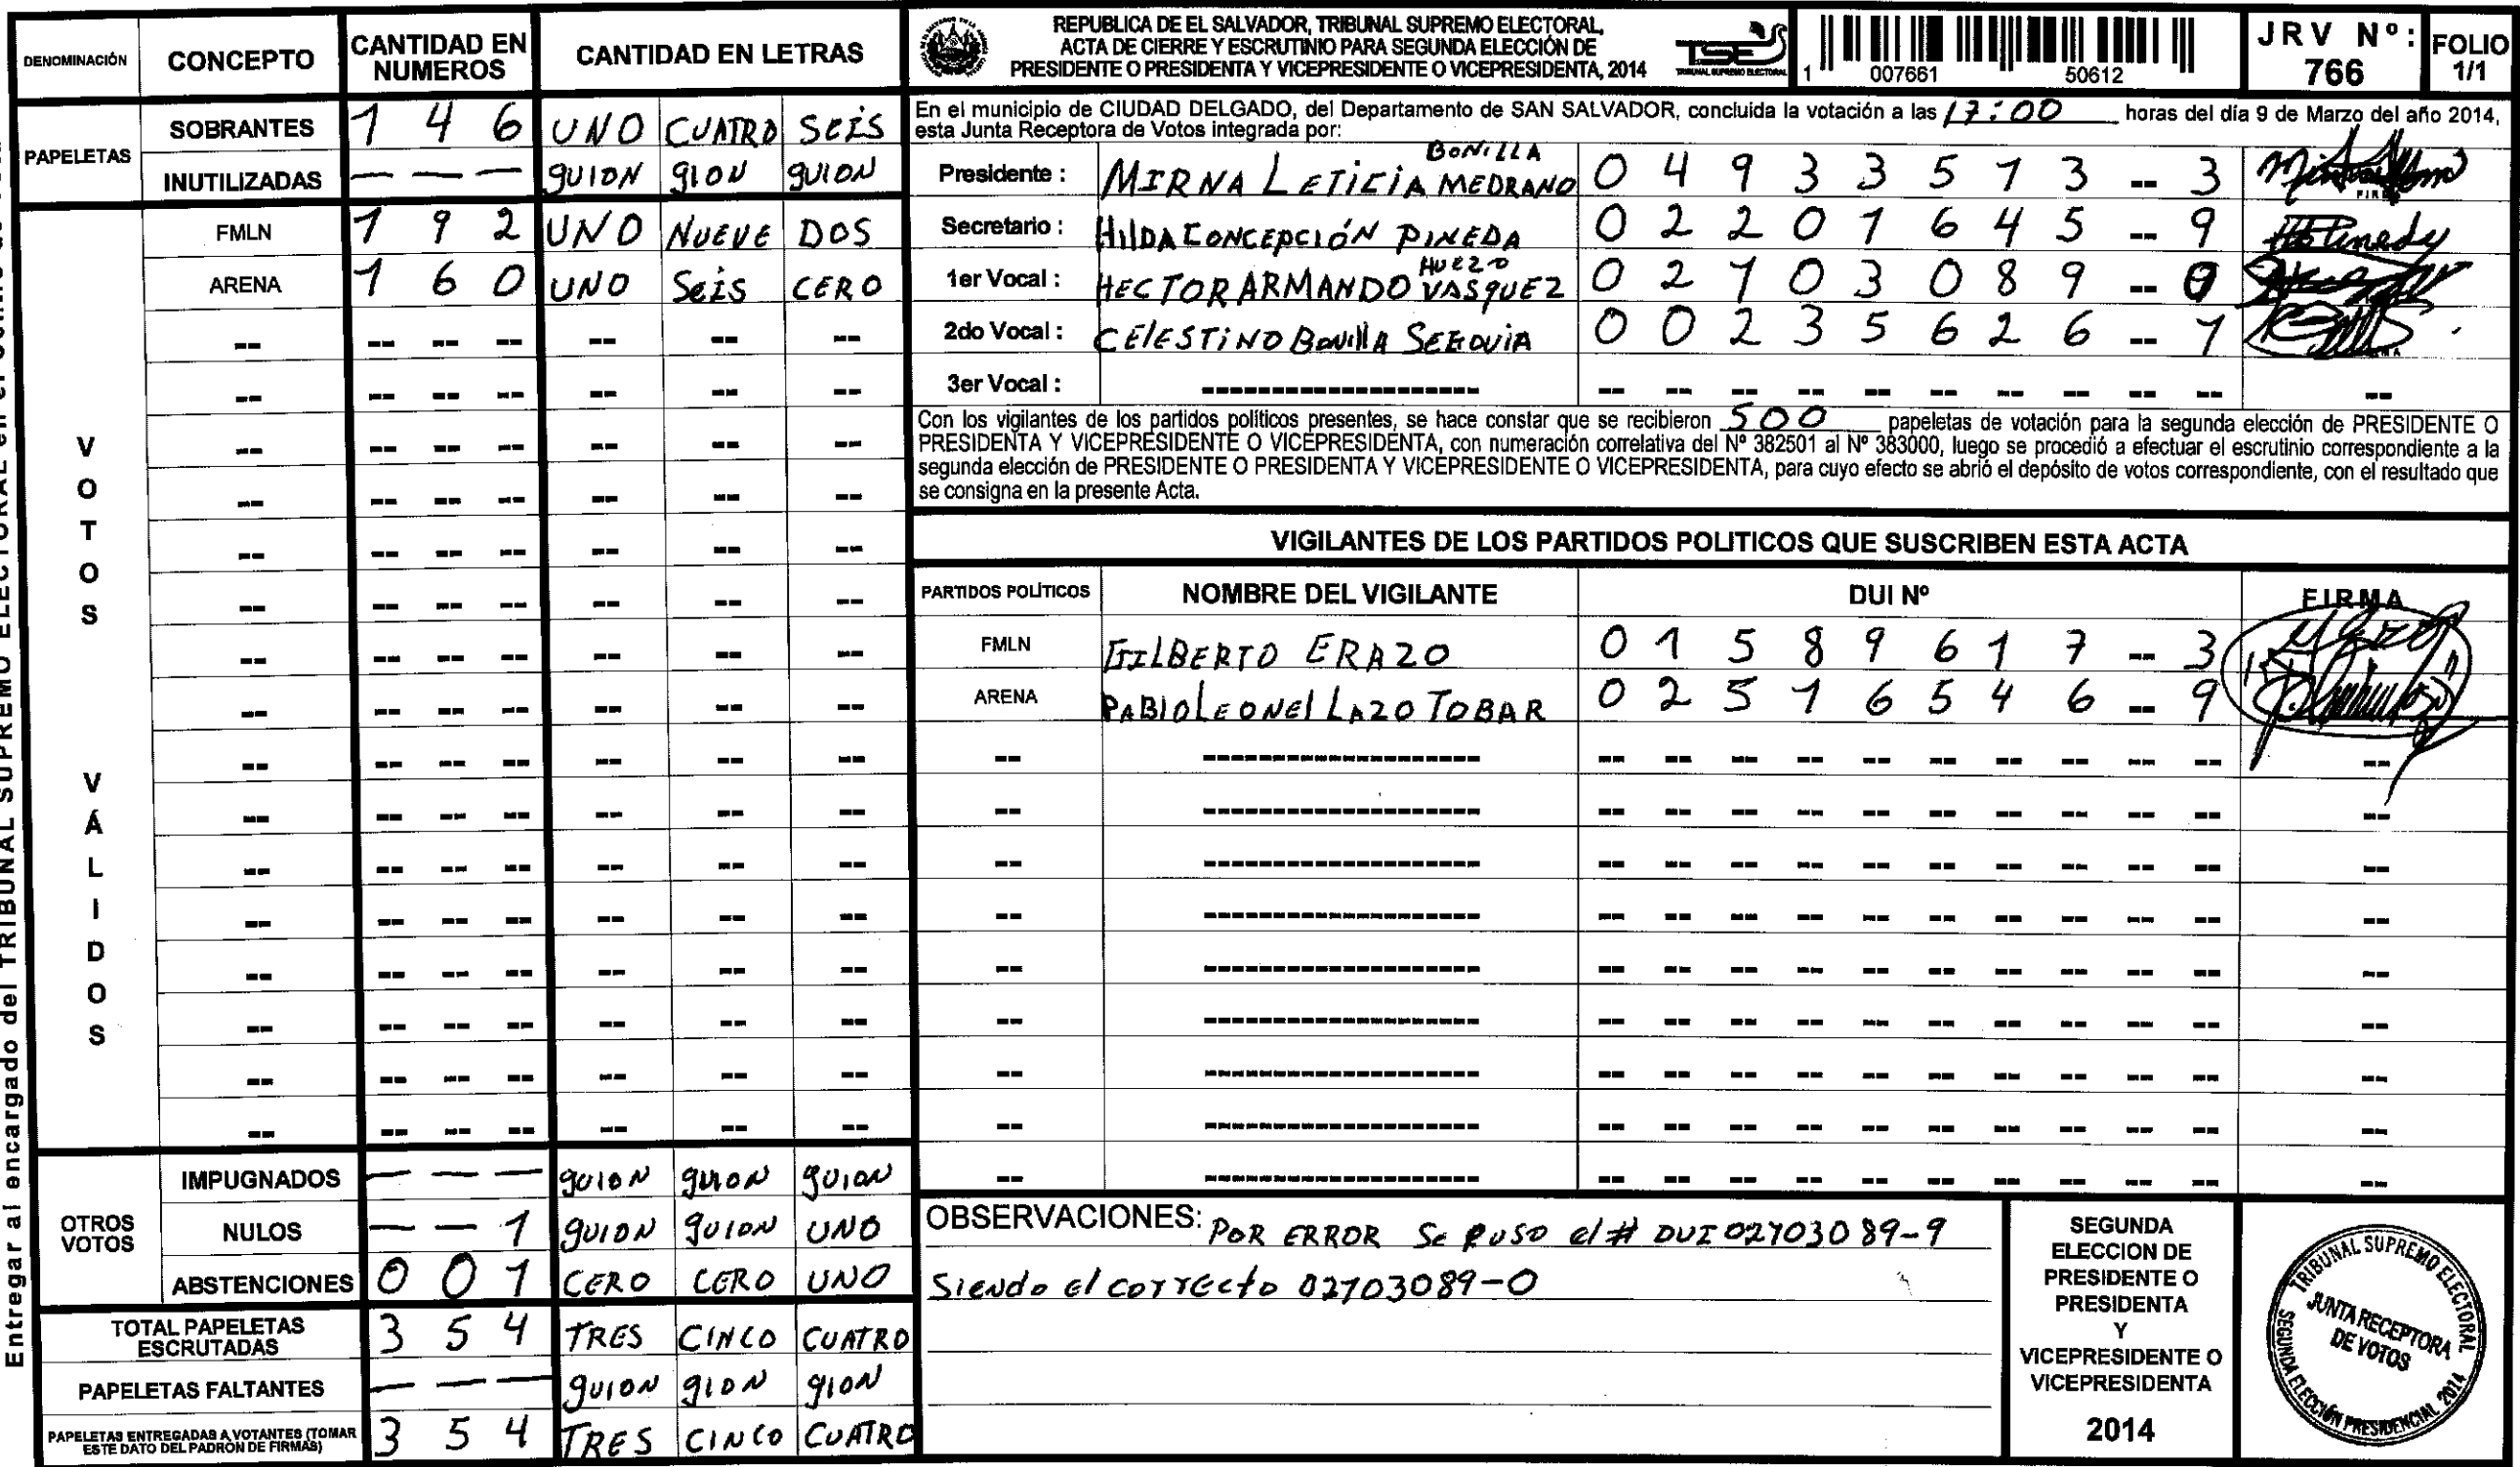 DENOMINACIÓN CONCEPTO CANTIDAD EN NUMEROS CANTIDAD EN LETRAS
PAPELETAS
SOBRANTES 1 4 6 UNO CUATRO SEIS
INUTILIZADAS — — — GUION GION GUION
VOTOS VÁLIDOS
FMLN 1 9 2 UNO NUEVE DOS
ARENA 1 6 0 UNO SEIS CERO
OTROS VOTOS
IMPUGNADOS — — — GUION GUION GUION
NULOS — — 1 GUION GUION UNO
ABSTENCIONES 0 0 1 CERO CERO UNO
TOTAL PAPELETAS ESCRUTADAS 3 5 4 TRES CINCO CUATRO
PAPELETAS FALTANTES — — — GUION GION GION
PAPELETAS ENTREGADAS A VOTANTES (TOMAR ESTE DATO DEL PADRÓN DE FIRMAS) 3 5 4 TRES CINCO CUATRO
REPUBLICA DE EL SALVADOR, TRIBUNAL SUPREMO ELECTORAL,
ACTA DE CIERRE Y ESCRUTINIO PARA SEGUNDA ELECCIÓN DE
PRESIDENTE O PRESIDENTA Y VICEPRESIDENTE O VICEPRESIDENTA, 2014
TSE
TRIBUNAL SUPREMO ELECTORAL
1 007661 50612
JRV Nº: 766
FOLIO 1/1
En el municipio de CIUDAD DELGADO, del Departamento de SAN SALVADOR, concluida la votación a las 17:00 horas del día 9 de Marzo del año 2014,
esta Junta Receptora de Votos integrada por:
Presidente : MIRNA LETICIA BONILLA MEDRANO 0 4 9 3 3 5 1 3 -- 3
Secretario : HILDA CONCEPCIÓN PINEDA 0 2 2 0 1 6 4 5 -- 9
1er Vocal : HECTOR ARMANDO HUEZO VASQUEZ 0 2 7 0 3 0 8 9 -- 0
2do Vocal : CELESTINO BONILLA SEGOVIA 0 0 2 3 5 6 2 6 -- 1
3er Vocal :
Con los vigilantes de los partidos políticos presentes, se hace constar que se recibieron 500 papeletas de votación para la segunda elección de PRESIDENTE O
PRESIDENTA Y VICEPRESIDENTE O VICEPRESIDENTA, con numeración correlativa del Nº 382501 al Nº 383000, luego se procedió a efectuar el escrutinio correspondiente a la
segunda elección de PRESIDENTE O PRESIDENTA Y VICEPRESIDENTE O VICEPRESIDENTA, para cuyo efecto se abrió el depósito de votos correspondiente, con el resultado que
se consigna en la presente Acta.
VIGILANTES DE LOS PARTIDOS POLITICOS QUE SUSCRIBEN ESTA ACTA
PARTIDOS POLÍTICOS NOMBRE DEL VIGILANTE DUI Nº FIRMA
FMLN GILBERTO ERAZO 0 1 5 8 9 6 1 7 -- 3
ARENA PABLO LEONEL LAZO TOBAR 0 2 5 1 6 5 4 6 -- 9
OBSERVACIONES: POR ERROR SE PUSO el # DUI 02703089-9
Siendo el correcto 02703089-0
SEGUNDA
ELECCION DE
PRESIDENTE O
PRESIDENTA
Y
VICEPRESIDENTE O
VICEPRESIDENTA
2014
TRIBUNAL SUPREMO ELECTORAL
JUNTA RECEPTORA
DE VOTOS
SEGUNDA ELECCIÓN PRESIDENCIAL 2014
Entregar al encargado del TRIBUNAL SUPREMO ELECTORAL en el